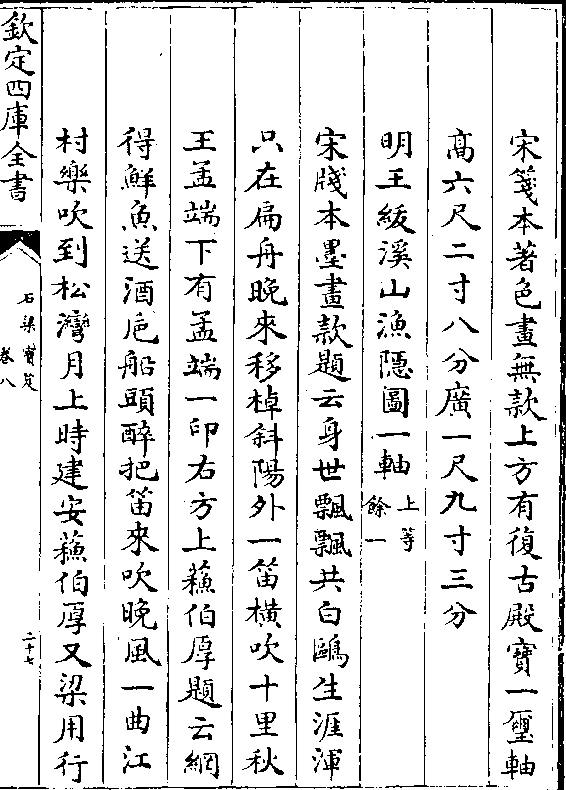 宋箋本著色畫無款上方有復古殿寶一璽軸
高六尺二寸八分廣一尺九寸三分
明王紱溪山漁隱圖一軸上等
餘一
宋牋本墨畫款題云身世飄飄共白鷗生涯渾
只在扁舟晚來移棹斜陽外一笛横吹十里秋
王孟端下有孟端一印右方上蘓伯厚題云網
得鮮魚送酒巵船頭醉把笛來吹晚風一曲江
村樂吹到松灣月上時建安蘓伯厚又梁用行
欽定四庫全書
石渠寳笈
卷八
二十七